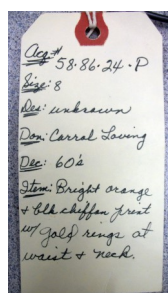 Acq.# 58·86·24·P
Size: 8
Des: unknown
Don: Carral Loving
Dec: 60's
Item: Bright orange
+ blk chiffon print
w/ gold rings at
waist + neck.